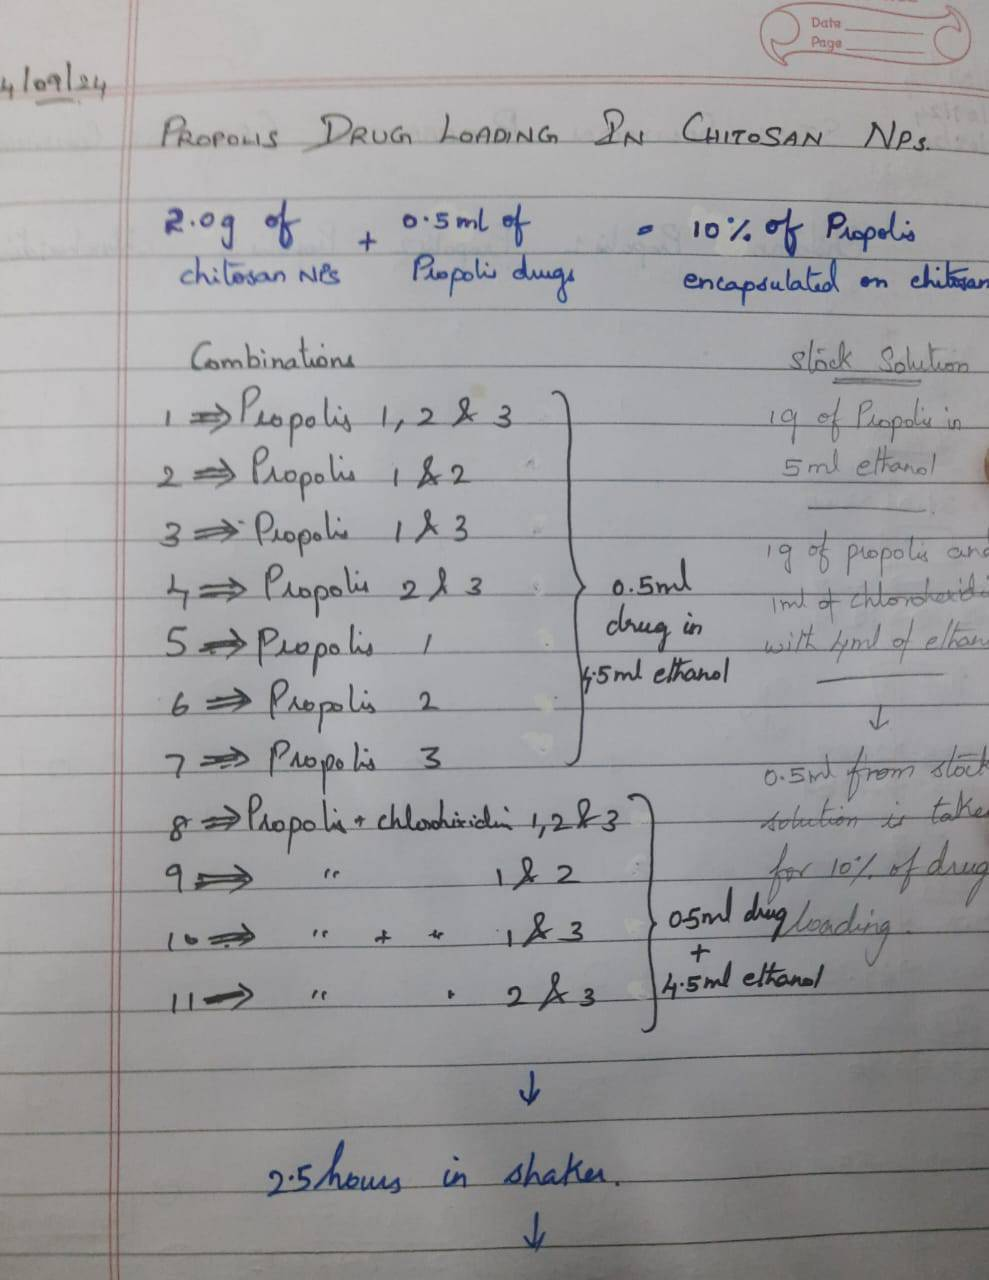 Date
Page
4/09/24
PROPOLIS DRUG LOADING IN CHITOSAN NPs.
2.0g of + 0.5ml of = 10% of Propolis
chitosan NPs Propolis drugs encapsulated on chitosan
Combinations
1 ⇒ Propolis 1, 2 & 3
2 ⇒ Propolis 1 & 2
3 ⇒ Propolis 1 & 3
4 ⇒ Propolis 2 & 3
5 ⇒ Propolis 1
6 ⇒ Propolis 2
7 ⇒ Propolis 3
0.5ml
drug in
4.5ml ethanol
8 ⇒ Propolis + chlorohixidin 1, 2 & 3
9 ⇒ " 1 & 2
10 ⇒ " + " 1 & 3
11 → " " 2 & 3
0.5ml drug
+
4.5ml ethanol
Stock Solution
1g of Propolis in
5ml ethanol
1g of propolis and
1ml of chlorohexidi
with 4ml of ethan
↓
0.5ml from stock
solution is take
for 10% of drug
loading.
↓
2.5 hours in shaker.
↓